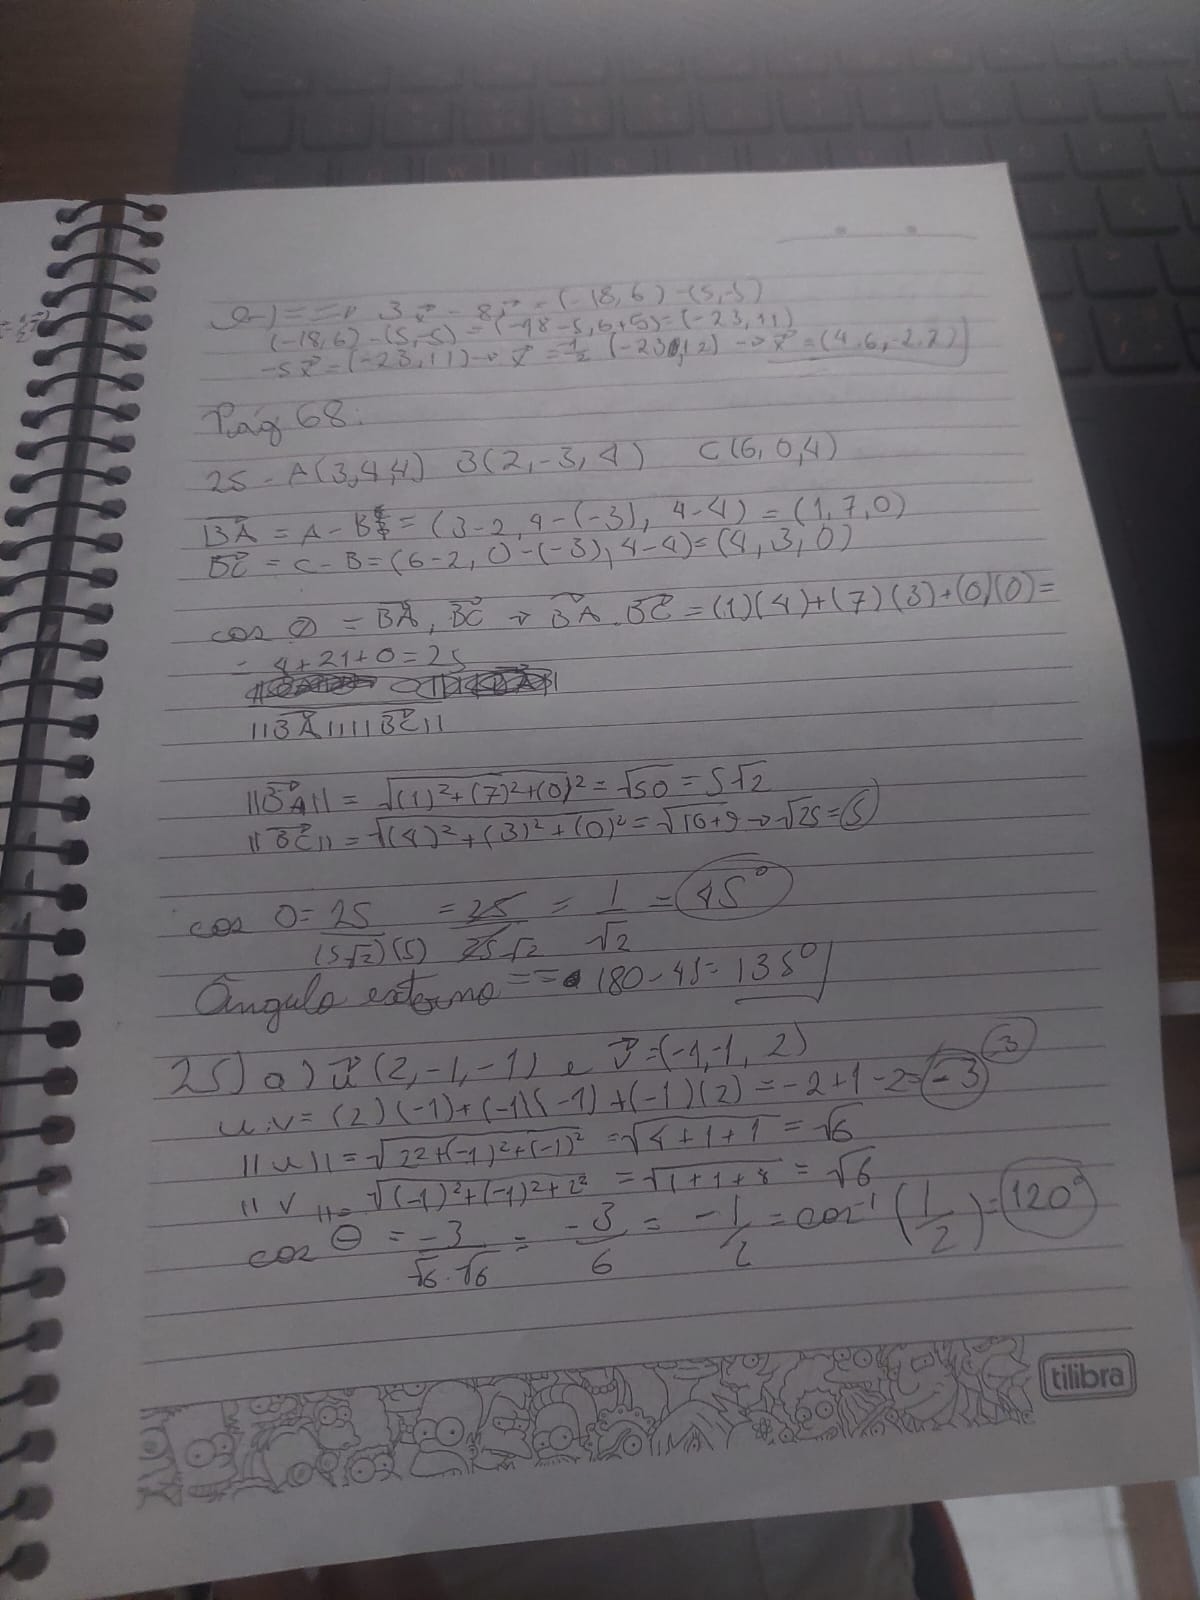 3x⃗ - 8x⃗ = (-18,6) - (5,-5)
(-18,6) - (5,-5) = (-18-5,6+5) = (-23,11)
-5x⃗ = (-23,11) → x⃗ = (-23,12) → x⃗ = (4.6,-2.2)
Pág 68.
25 - A(3,4,4) B(2,-3,4) C(6,0,4)
BA⃗ = A - B = (3-2, 4-(-3), 4-4) = (1,7,0)
BC⃗ = C - B = (6-2, 0-(-3), 4-4) = (4,3,0)
cos θ = BA⃗ . BC⃗ → BA⃗ . BC⃗ = (1)(4)+(7)(3)+(0)(0) =
= 4+21+0=25
||BA⃗|| ||BC⃗||
||BA⃗|| = √(1)²+(7)²+(0)² = √50 = 5√2
||BC⃗|| = √(4)²+(3)²+(0)² = √16+9 → √25 = 5
cos θ = 25/(5√2)(5) = 25/25√2 = 1/√2 = 45°
Ângulo externo == 180-45 = 135°
25) a) u⃗ (2,-1,-1) e v⃗ = (-1,-1,2)
u.v = (2)(-1)+(-1)(-1)+(-1)(2) = -2+1-2 = -3 -3
||u|| = √22+(-1)²+(-1)² = √4+1+1 = √6
||v|| = √(-1)²+(-1)²+2² = √1+1+4 = √6
cos θ = -3/√6.√6 = -3/6 = -1/2 = cos⁻¹(1/2) = 120°
tilibra